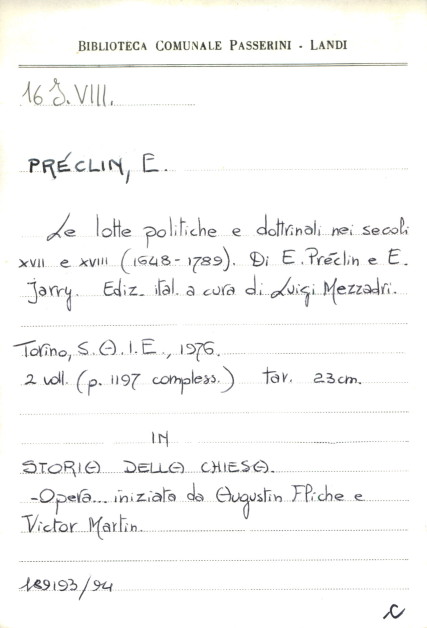 BIBLIOTECA COMUNALE PASSERINI - LANDI
16 J.VIII.
PRÉCLIN, E.
Le lotte politiche e dottrinali nei secoli
XVII e XVIII (1648-1789). Di E. Préclin e E.
Jarry. Ediz. ital. a cura di Luigi Mezzadri.
Torino, S.A.I.E., 1976.
2 voll. (p. 1197 compless.) tav. 23cm.
IN
STORIA DELLA CHIESA.
-Opera... iniziata da Augustin Fliche e
Victor Martin.
189193/94
C